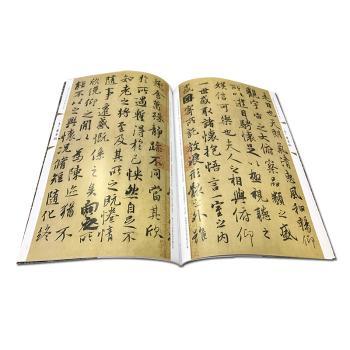 是日也天朗氣清惠風和暢仰
觀宇宙之大俯察品類之盛
所以遊目騁懷足以極視聽之
娛信可樂也夫人之相與俯仰
一世或取諸懷抱悟言一室之內
或因寄所託放浪形骸之外雖
趣舍萬殊靜躁不同當其欣
於所遇暫得於己快然自足不
知老之將至及其所之既惓情
隨事遷感慨係之矣向之所
欣俛仰之閒以為陳迹猶不
能不以之興懷況脩短隨化終